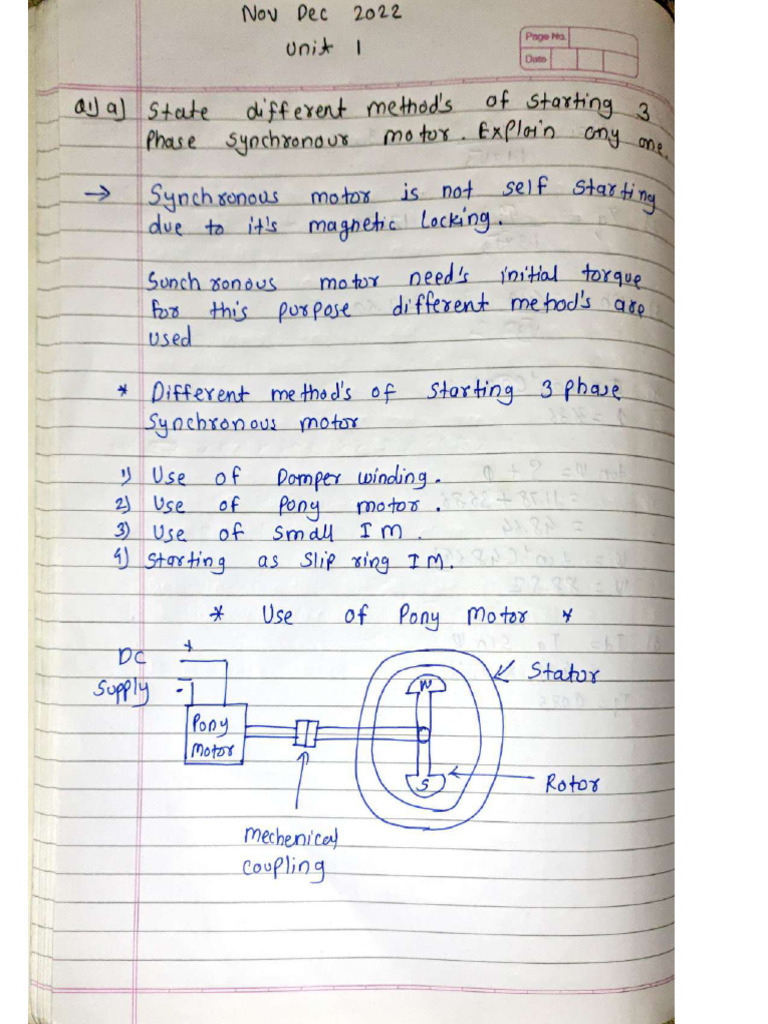 Nov Dec 2022
Unit 1
Page No.
Date
Q1) a) State different method's of starting 3
Phase Synchronour motor. Explain any one.
→ Synchronous motor is not self starting
due to it's magnetic Locking.
Sunchronous motor need's initial torque
for this purpose different method's are
used
* Different method's of starting 3 phase
Synchronous motor
1) Use of Damper winding.
2) Use of Pony motor.
3) Use of small IM.
4) Starting as Slip ring IM.
* Use of Pony Motor *
DC
Supply
+
-
Pony
Motor
N
S
Stator
Rotor
mechenical
coupling